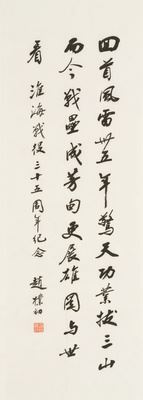 回首風雷卅五年驚天功業拔三山
而今戰壘成芳甸更展雄圖与世
看 淮海戰役三十五周年紀念 趙樸初